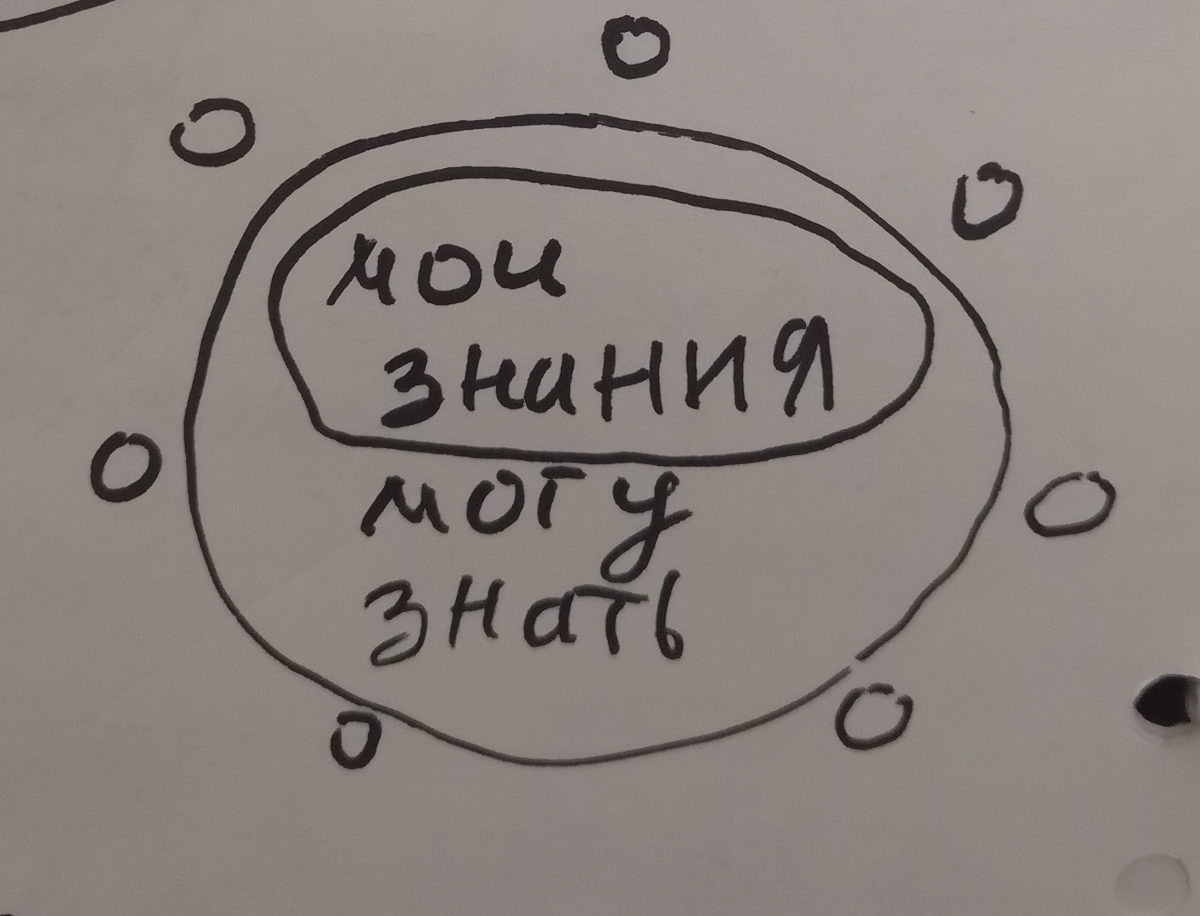 мои
знания
могу
знать